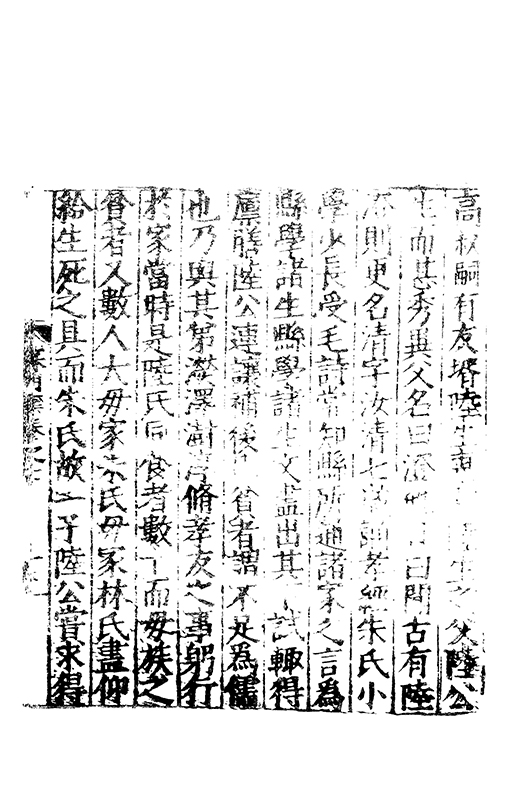 高叔嗣有友壻陸生者陸生之父陸公
生而甚秀異父名曰澄曰間古有陸
澄則更名清字汝清七歲誦孝經朱氏小
學少長受毛詩嘗知縣所通諸家之言為
縣學諸生縣學諸生文盡出其試輒得
廩膳陸公連讓補後省者謂不足為儒
也乃與其弟濙澤澍淳脩孝友之事躬行
於家當時是陸氏同食者數十而母族之
昝者又數人大母家朱氏母家林氏盡仰
給生死之具而朱氏故一子陸公嘗求得